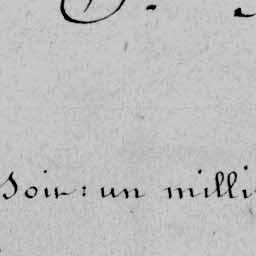 Soit : un milli